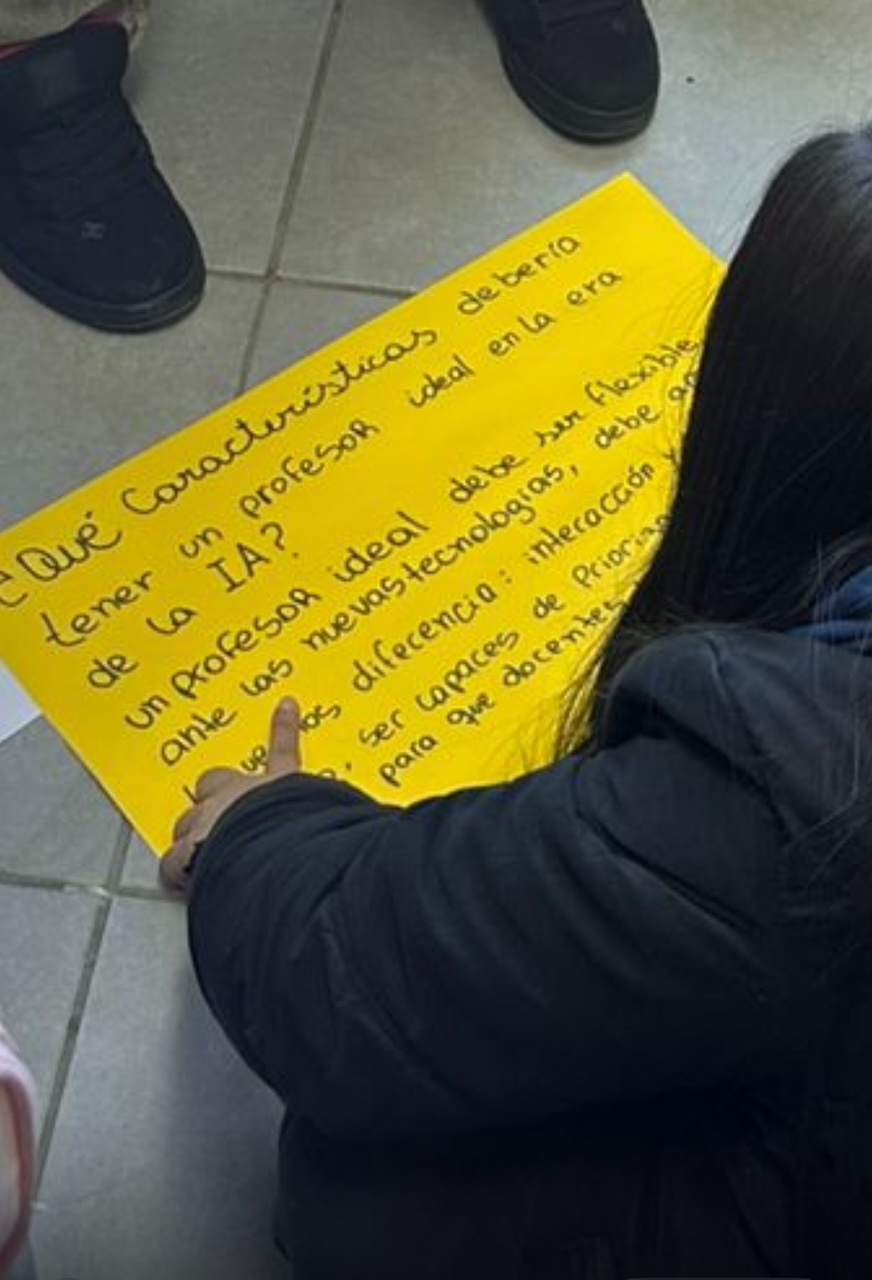 ¿Qué Características debería
tener un profesor ideal en la era
de la IA?
un profesor ideal debe ser flexible
ante las nuevas tecnologias, debe
diferencia: interacción y
ser capaces de
para que docentes